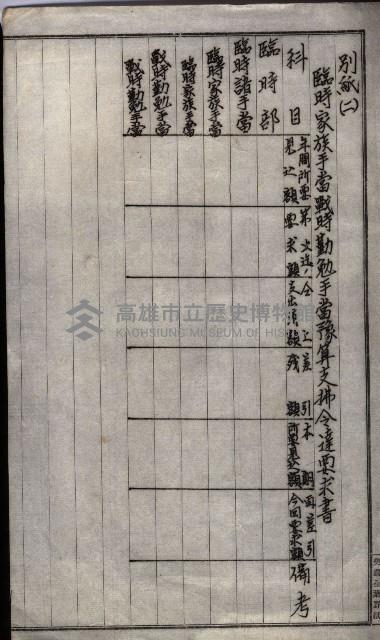 別紙(二)
臨時家族手當戰時勤勉手當豫算支拂令達要求書
科目
年間所要見込額
第 次迄ノ要求額
仝上支出済額
差引残額
本期所要見込額
再差引今回要求額
備考
臨時部
臨時諸手當
臨時家族手當
臨時家族手當
戰時勤勉手當
戰時勤勉手當
高雄市立歷史博物館
KAOHSIUNG MUSEUM OF HISTORY